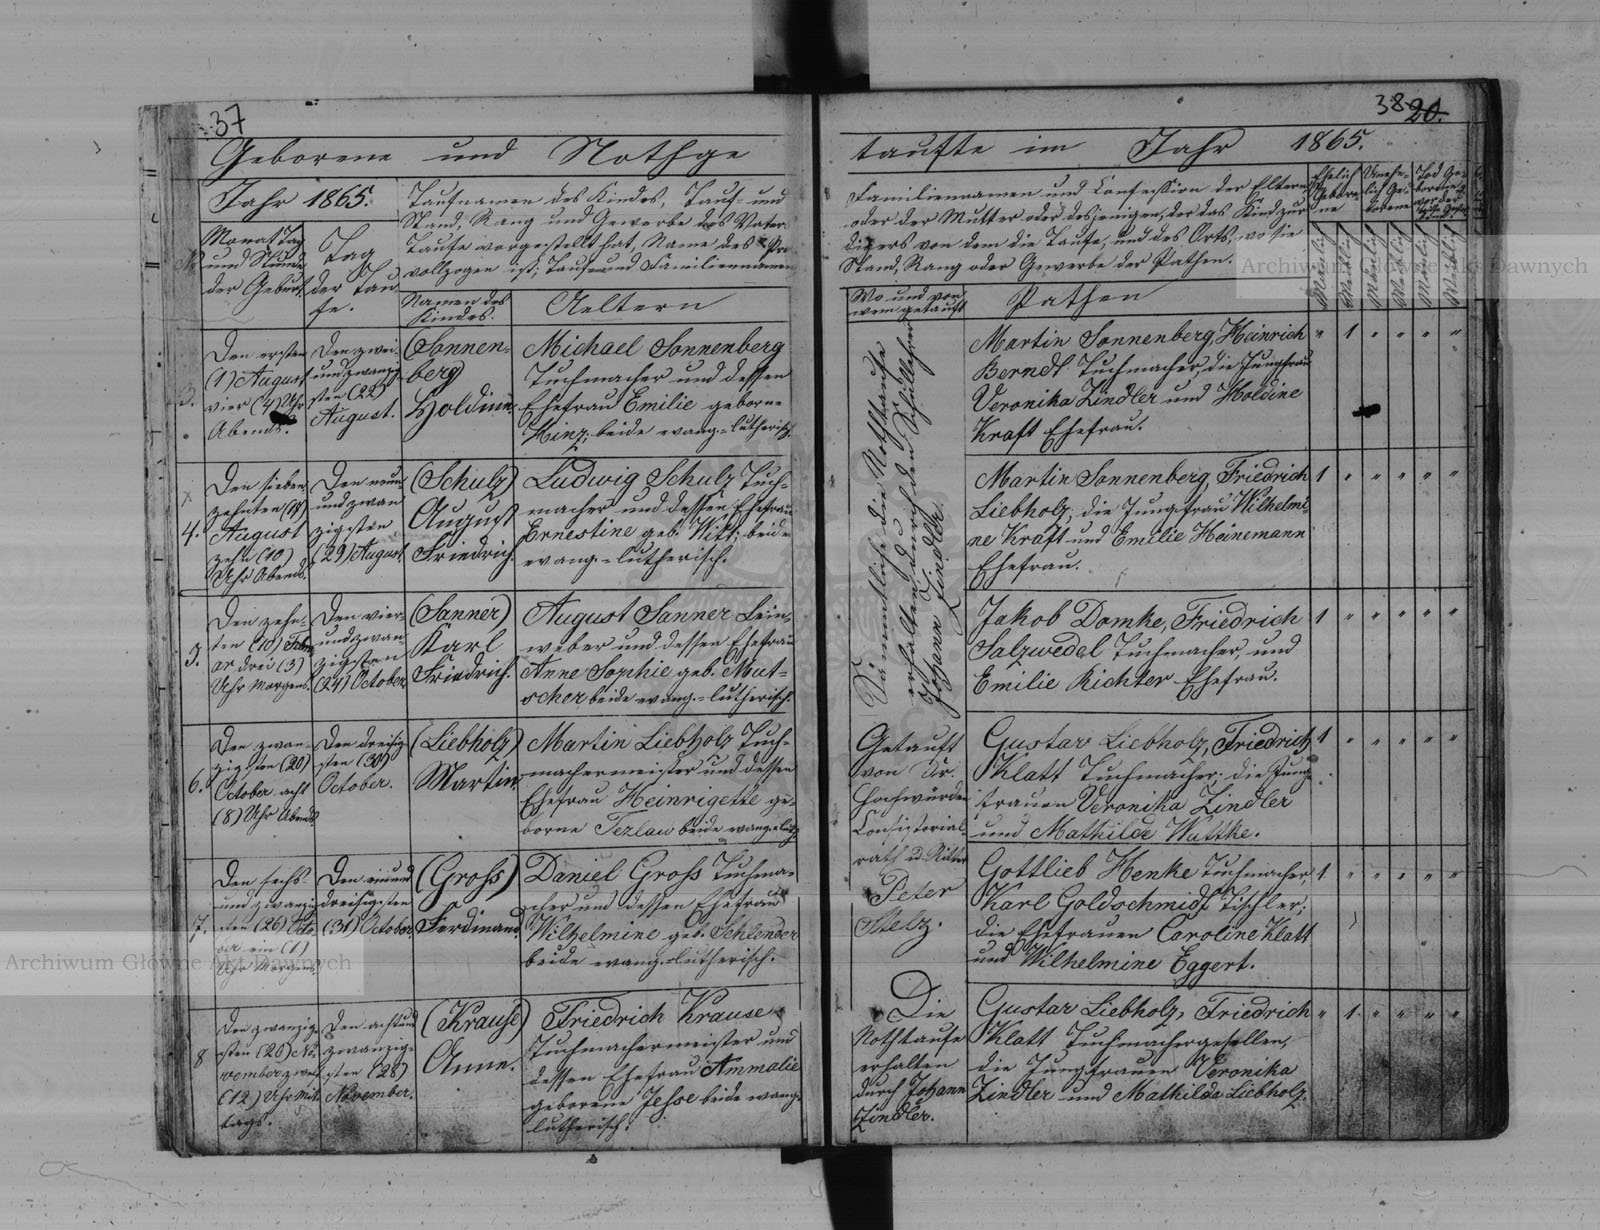 37
Geborene und Nothge
Jahr 1865.
Taufnamen des Kindes, Tauf- und
Stand, Rang und Gewerbe des Vaters
Taufe vorgestellt hat, Name des Pre
vollzogen ist; Tauf- und Familiennamen
Monat Tag
und Stunde
der Geburt.
Tag
der Tau
fe.
Namen des
Kindes.
Aeltern
3.
Den ersten
(1) August
vier (4) Uhr
Abends.
Den zwei-
und zwanzig
sten (22)
August.
(Sonnen-
berg)
Holdine.
Michael Sonnenberg
Tuchmacher und dessen
Ehefrau Emilie geborne
Hinz; beide evang.-lutherisch.
4.
Den sieben
zehnten (17)
August
zehn (10)
Uhr Abends.
Den neun
und zwan
zigsten
(29) August.
(Schulz)
August
Friedrich.
Ludwig Schulz Tuch-
macher und dessen Ehefrau
Ernestine geb. Witt; beide
evang.-lutherisch.
5.
Den zehn-
ten (10) Febru
ar drei (3)
Uhr Morgens.
Den vier-
und zwan
zigsten
(24) October
(Sanner)
Karl
Friedrich.
August Sanner Lein-
weber und dessen Ehefrau
Anne Sophie geb. Mut-
scher beide evang.-lutherisch.
6.
Den zwan-
zigsten (20)
October acht
(8) Uhr Abends
Den dreisig-
sten (30)
October.
(Liebholz)
Martin.
Martin Liebholz Tuch-
machermeister und dessen
Ehefrau Heinrigette ge-
borne Tezlau beide evang-luth.
7.
Den sechs-
und zwanzig
sten (26) Octo-
ber ein (1)
Uhr Morgens.
Den ein und
dreisigsten
(31) October.
(Gross)
Ferdinand.
Daniel Gross Tuchma-
cher und dessen Ehefrau
Wilhelmine geb. Schlender
beide evang.-lutherisch.
8
Den zwanzig-
sten (20) No-
vember zwölf
(12) Uhr Mit-
tags.
Den acht und
zwanzig-
sten (28)
November.
(Krause)
Anne.
Friedrich Krause
Tuchmachermeister und
dessen Ehefrau Ammalie
geborene Jesse beide evang-
lutherisch.
38 20.
taufte im Jahr 1865.
Familiennamen und Confession der Eltern
oder der Mutter oder desjenigen, der das Kind zur
digers von dem die Taufe, und des Orts, wo sie
Stand, Rang oder Gewerbe der Pathen.
Ehelich
Gebore
ne
Unehe-
lich Ge-
borene
Tod Ge-
borene
Mänlich
Weiblich
Mänlich
Weiblich
Mänlich
Weiblich
Wo und von
wem getauft
Pathen
Sämmtliche die Nothtaufe
erhalten durch den Schullehrer
Johann Zindler.
Martin Sonnenberg, Heinrich
Berndt Tuchmacher, die Jungfrau
Veronika Zindler und Holdine
Kraft Ehefrau.
" 1 " " " "
Martin Sonnenberg, Friedrich
Liebholz; die Jungfrau Wilhelmi-
ne Kraft und Emilie Heinemann
Ehefrau.
1 " " " " "
Jakob Domke, Friedrich
Salzwedel Tuchmacher, und
Emilie Richter Ehefrau.
1 " " " " "
Getauft
von Sr.
Hochwürden
Consistorial-
rath u. Ritter
Peter
Stelz.
Gustav Liebholz, Friedrich
Klatt Tuchmacher; die Jung-
frauen Veronika Zindler
und Mathilde Wuttke.
1 " " " " "
Gottlieb Henke Tuchmacher,
Karl Goldschmidt Tischler;
die Ehefrauen Caroline Klatt
und Wilhelmine Eggert.
1 " " " " "
Die
Nothtaufe
erhalten
durch Johann
Zindler.
Gustav Liebholz, Friedrich
Klatt Tuchmachergesellen,
die Jungfrauen Veronika
Zindler und Mathilde Liebholz.
" 1 " " " "
Archiwum Główne Akt Dawnych
Archiwum Główne Akt Dawnych